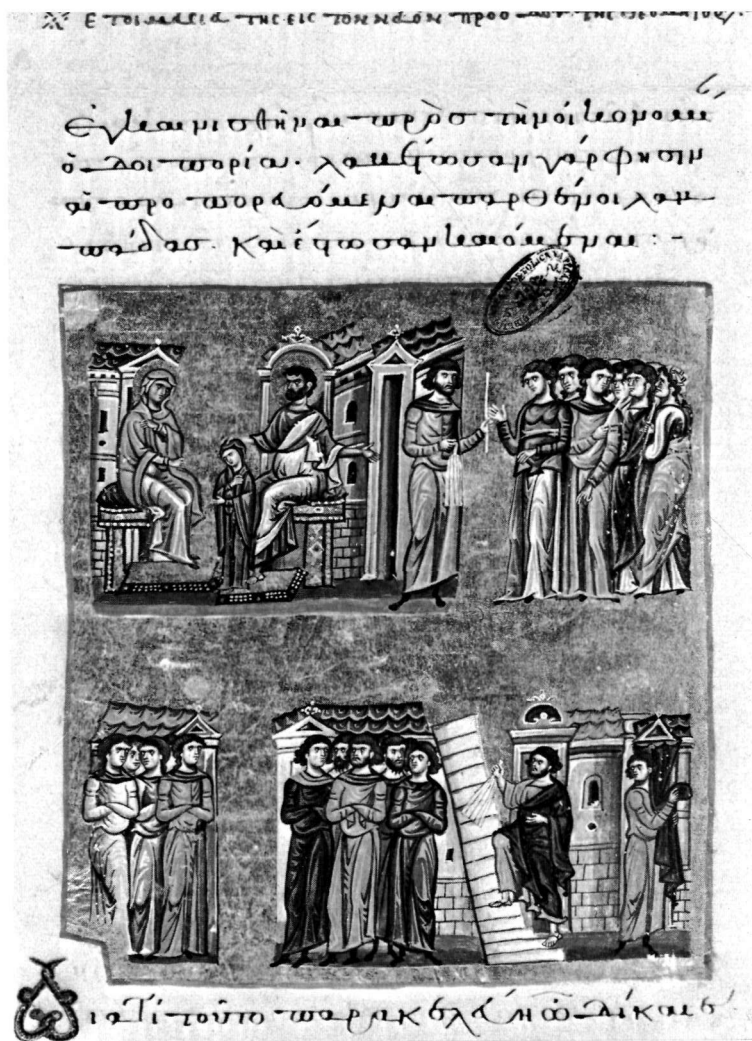 Ἑτοιμασία τῆς εἰς τὸν ναὸν προόδου τῆς θεομήτορος
ἐγκαινισθῆναι πρὸς τὴν
ὁδοιπορίαν. λαβέτωσαν γάρ φησιν
αἱ προπορευόμεναι παρθένοι λαμ
πάδας. καὶ ἔστωσαν καιόμεναι :-
Διατί τοῦτο παρακελεύη ὦ δίκαιε